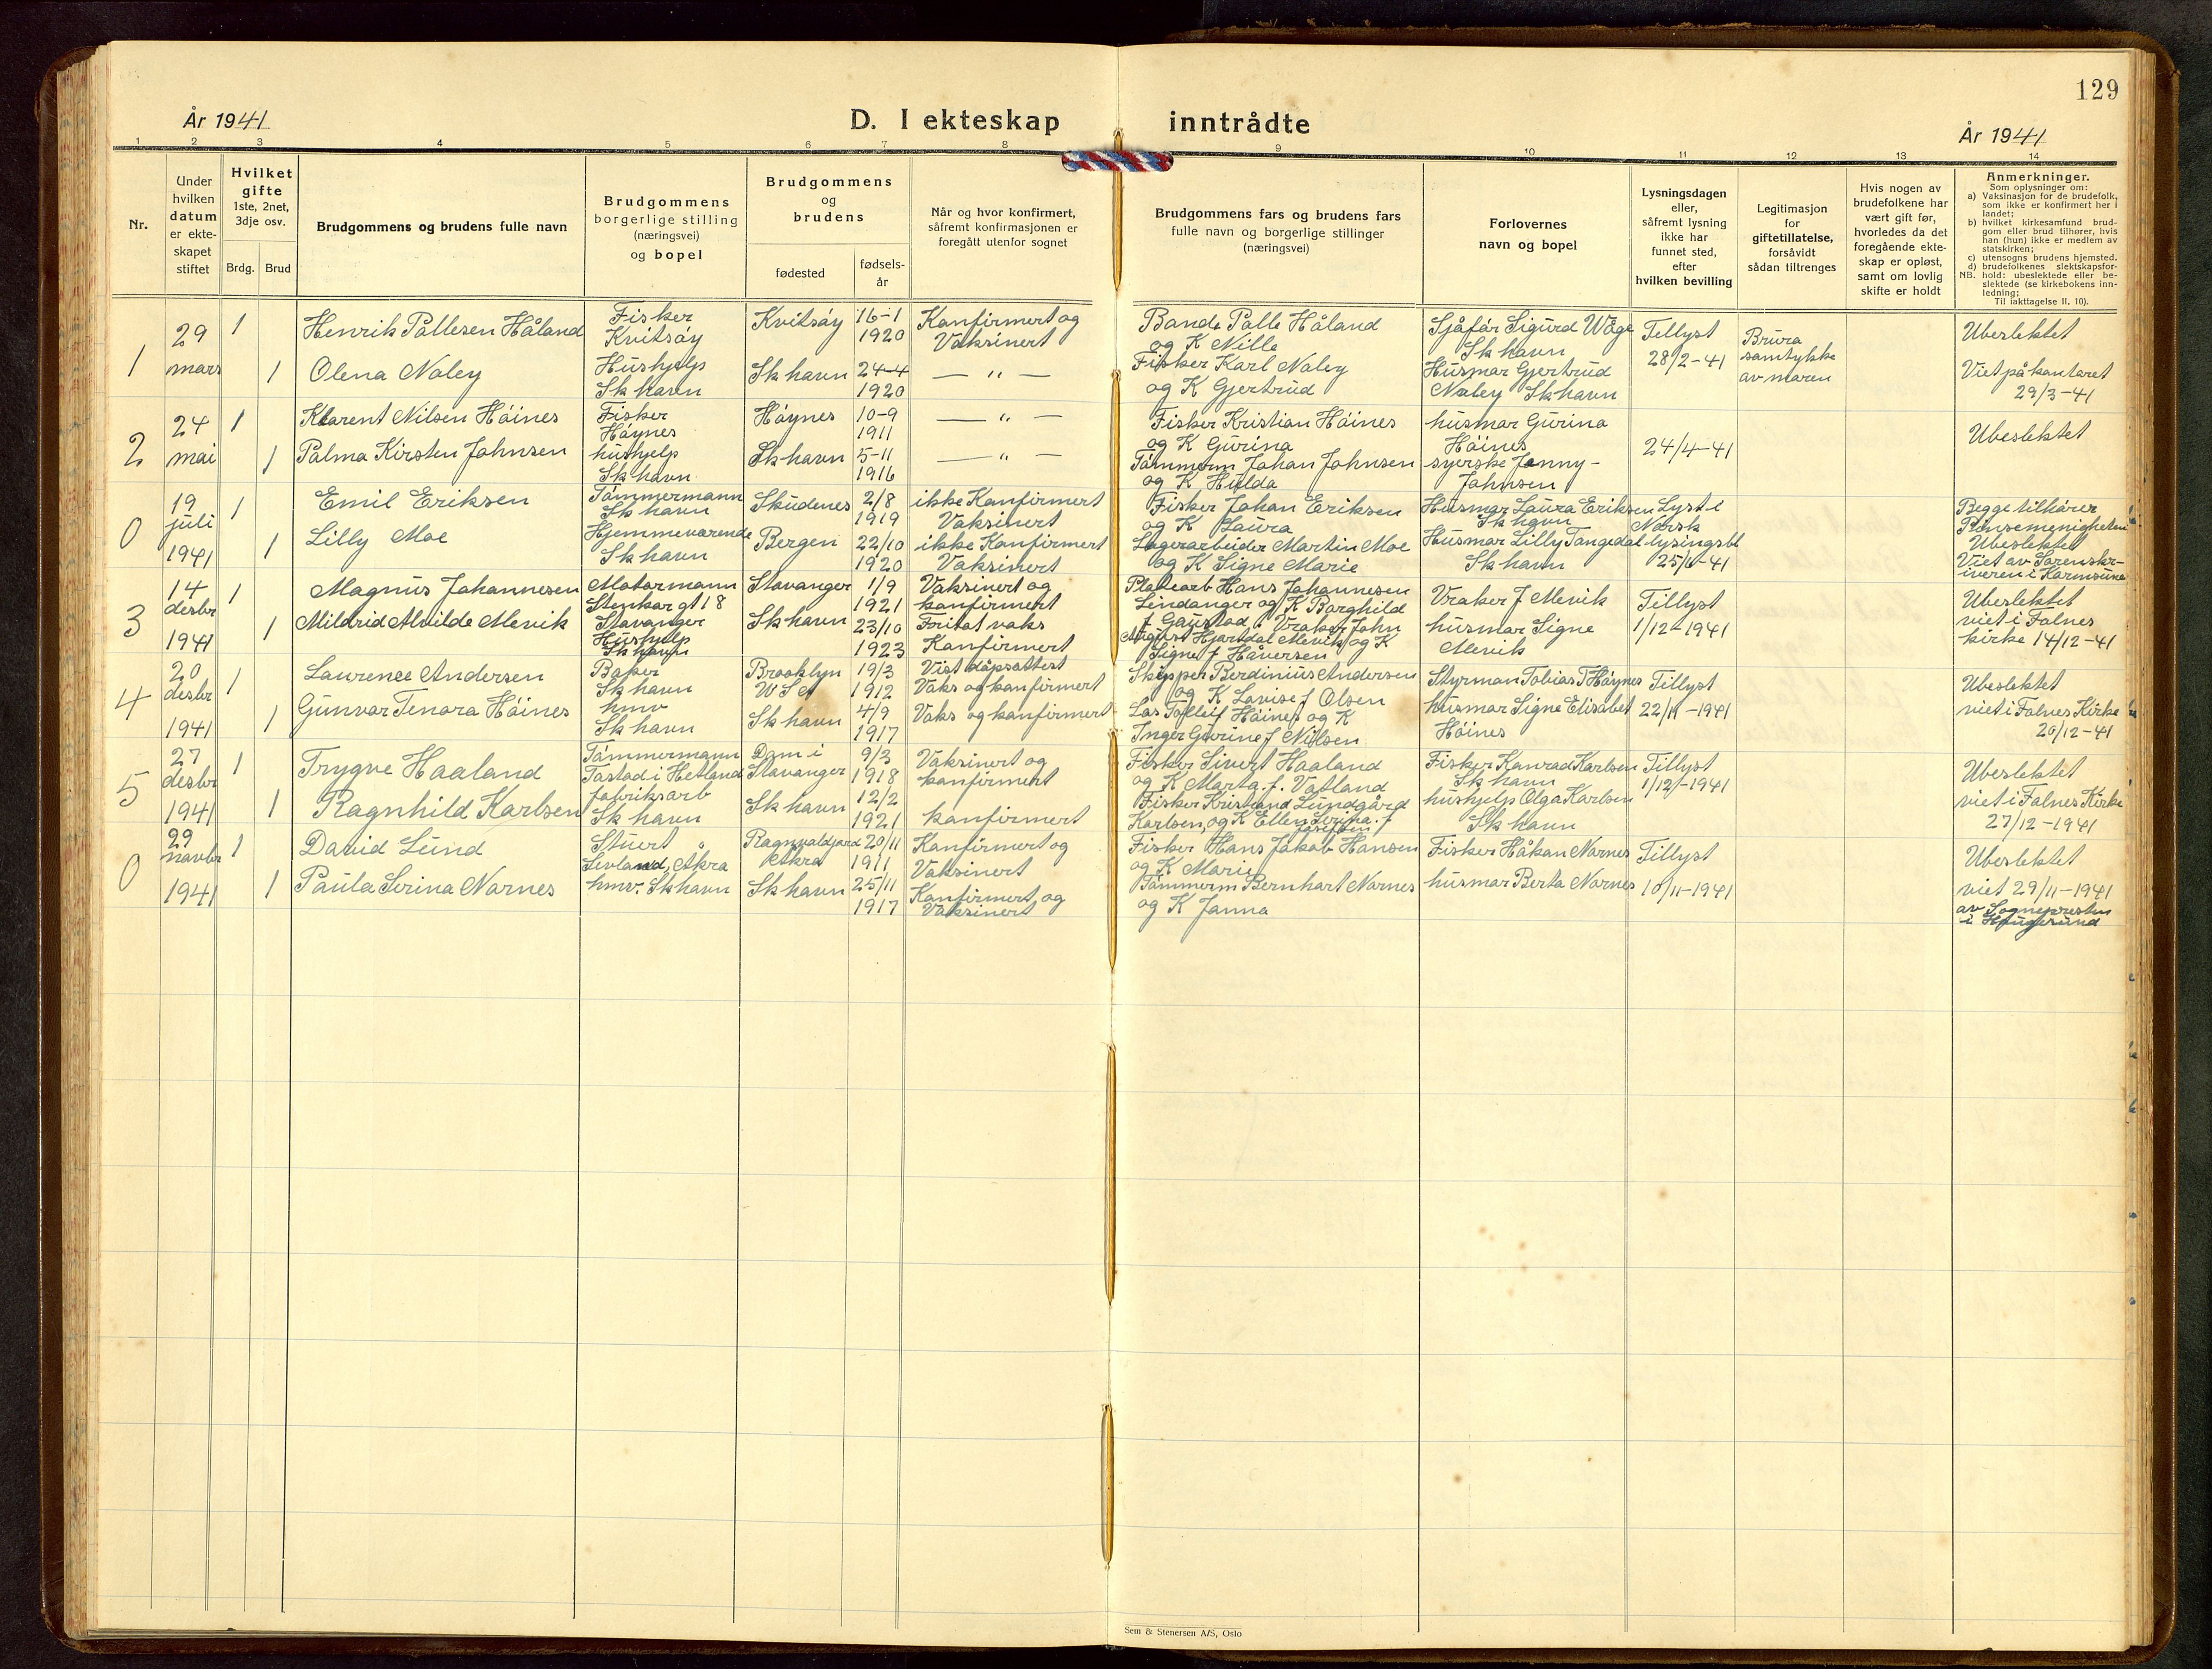 129
År 1941
D. I ekteskap inntrådte
År 1941
1 2 3 4 5 6 7 8 9 10 11 12 13 14
Nr.
Under
hvilken
datum
er ekte-
skapet
stiftet
Hvilket
gifte
1ste, 2net,
3dje osv.
Brdg. Brud
Brudgommens og brudens fulle navn
Brudgommens
borgerlige stilling
(næringsvei)
og bopel
Brudgommens
og
brudens
fødested
fødsels-
år
Når og hvor konfirmert,
såfremt konfirmasjonen er
foregått utenfor sognet
Brudgommens fars og brudens fars
fulle navn og borgerlige stillinger
(næringsvei)
Forlovernes
navn og bopel
Lysningsdagen
eller,
såfremt lysning
ikke har
funnet sted,
efter
hvilken bevilling
Legitimasjon
for
giftetillatelse,
forsåvidt
sådan tiltrenges
Hvis nogen av
brudefolkene har
vært gift før,
hvorledes da det
foregående ekte-
skap er opløst,
samt om lovlig
skifte er holdt
Anmerkninger.
Som oplysninger om:
a) Vaksinasjon for de brudefolk,
som ikke er konfirmert her i
landet;
b) hvilket kirkesamfund brud-
gom eller brud tilhører, hvis
han (hun) ikke er medlem av
statskirken;
c) utensogns brudens hjemsted.
d) brudefolkenes slektskapsfor-
NB. hold: ubeslektede eller be-
slektede (se kirkebokens inn-
ledning;
Til iakttagelse II. 10).
1
29
mars
1
1
Henrik Pallesen Håland
Olena Naley
Fisker
Kvitsøy
Hushjelp
Sk havn
Kvitsøy
Sk havn
16-1
1920
24-4
1920
Konfirmert og
Vaksinert
— " —
Bonde Palle Håland
og K Nille
Fisker Karl Naley
og K Gjertrud
Sjåfør Sigurd Våge
Sk havn
Husmor Gjertrud
Naley Sk havn
Tillyst
28/2-41
Brura
samtykke
av moren
Ubeslektet
Viet på kontoret
29/3-41
2
24
mai
1
1
Klarent Nilsen Høines
Palma Kirsten Johnsen
Fisker
Høynes
hushjelp
Sk havn
Høynes
Sk havn
10-9
1911
5-11
1916
— " —
— " —
Fisker Kristian Høines
og K Gurina
Tømmerm Johan Johnsen
og K Hulda
husmor Gurina
Høines
syerske Jonny-
Johnsen
24/4-41
Ubeslektet
0
19
juli
1941
1
1
Emil Eriksen
Lilly Moe
Tømmermann
Sk havn
Hjemmeværende
Sk havn
Skudenes
Bergen
2/8
1919
22/10
1920
ikke Konfirmert
Vaksinert
ikke Konfirmert
Vaksinert
Fisker Johan Eriksen
og K Laura
Lagerarbeider Martin Moe
og K Signe Marie
Husmor Laura Eriksen
Sk havn
Husmor Lilly Tangedal
Sk havn
Lyst i
Norsk
lysingsbl
Begge tilhører
Pinsemenigheten
Ubeslektet
Viet av Sorenskr-
iveren i Karmsund
3
14
desbr
1941
1
1
Magnus Johannesen
Mildrid Alvilde Mevik
Motormann
Stenkargt 18
Stavanger
Hushjelp
Sk havn
Stavanger
Sk havn
1/9
1921
23/10
1923
Vaksinert og
konfirmert
Fritat vaks
Konfirmert
Platearb Hans Johannesen
Lindanger og K Borghild
f Gaustad. Vraker John
August Hjerdal Mevik og K
Signe f Håversen
Vraker J Mevik
husmor Signe
Mevik
Tillyst
1/12-1941
Ubeslektet
viet i Falnes
kirke 14/12-41
4
20
desbr
1941
1
1
Laurence Andersen
Gunvor Tenora Høines
Baker
Sk havn
hmv
Sk havn
Brooklyn
U S A
Sk havn
19/3
1912
4/9
1917
Vist dåpsattest
Vaks og konfirmert
Vaks og konfirmert
Skipper Berdinius Andersen
og K Lovise f Olsen
Los Tolleif Høines og K
Inger Gurine f Nilsen
Styrman Tobias T Høynes
husmor Signe Elisabet
Høines
Tillyst
22/11-1941
Ubeslektet
viet i Falnes Kirke
20/12-41
5
27
desbr
1941
1
1
Trygve Haaland
Ragnhild Karlsen
Tømmermann
Tastad i Hetland
fabriksarb
Sk havn
Dom i
Stavanger
Sk havn
9/3
1918
12/2
1921
Vaksinert og
konfirmert
konfirmert
Fisker Sivert Haaland
og K Marta. f. Vatland
Fisker Kristiand Lundgård
Karlsen, og K Ellen Serina. f
Josefsen
Fisker Konrad Karlsen
Sk havn
hushjelp Olga Karlsen
Sk havn
Tillyst
1/12-1941
Ubeslektet
viet i Falnes Kirke
27/12-1941
0
29
novbr
1941
1
1
David Lund
Paula Serina Nornes
Stuert
Sevland, Åkra
hmv. Sk havn
Ragnvaldjord
Åkra
Sk havn
20/11
1911
25/11
1917
Konfirmert og
Vaksinert
Konfirmert og
Vaksinert
Fisker Hans Jakob Hansen
og K Marie
Tømmerm Bernhart Nornes
og K Janna
Fisker Håkon Nornes
husmor Berta Nornes
Tillyst
10/11-1941
Ubeslektet
viet 29/11-1941
av Sognepresten
i Haugesund
Sem & Stenersen A/S, Oslo